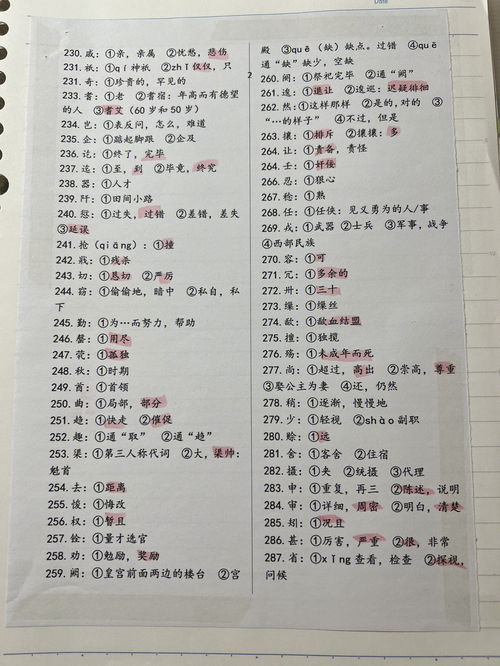 Date
230. 戚：①亲，亲属 ②忧愁，悲伤
231. 祇：①qí 神祇 ②zhǐ仅仅，只
231. 奇：①珍贵的，罕见的
233. 耆：①老 ②耆宿：年高而有德望
的人 ③耆艾（60岁和50岁）
234. 岂：①表反问，怎么，难道
235. 企：①踮起脚跟 ②企及
236. 讫：①终了，完毕
237. 迄：①至，到 ②毕竟，终究
238. 器：①人才
239. 阡：①田间小路
240. 愆：①过失，过错 ②差错，差失
③延误
241. 抢（qiāng）：①撞
242. 戕：①残杀
243. 切：①恳切 ②严厉
244. 窃：①偷偷地，暗中 ②私自，私
下
245. 勤：①为…而努力，帮助
246. 罄：①用尽
247. 茕：①孤独
248. 秋：①时期
249. 酋：①首领
250. 曲：①局部，部分
251. 趋：①快走 ②催促
252. 趣：①通“取” ②通“趋”
253. 渠：①第三人称代词 ②大，渠帅：
魁首
254. 去：①距离
255. 悛：①悔改
256. 权：①暂且
257. 铨：①量才选官
258. 劝：①勉励，奖励
259. 阙：①皇宫前面两边的楼台 ②宫
2
殿 ③quē（缺）缺点。过错 ④quē
通“缺”缺少，空缺
260. 阕：①祭祀完毕 ②通“阙”
261. 逡：①退让 ②逡巡：迟疑徘徊
262. 然：①这样那样 ②是的，对的 ③
“…的样子” ④不过，但是
263. 攘：①排斥 ②攘攘：多
264. 让：①责备，责怪
264. 壬：①奸佞
266. 忍：①狠心
267. 稔：①熟
268. 任：①任侠：见义勇为的人/事
269. 戎：①武器 ②士兵 ③军事，战争
④西部民族
270. 容：①可
271. 冗：①多余的
272. 卅：①三十
273. 缫：①缫丝
274. 歃：①歃血结盟
275. 擅：①独揽
276. 殇：①未成年而死
277. 尚：①超过，高出 ②崇高，尊重
③娶公主为妻 ④还，仍然
278. 稍：①逐渐，慢慢地
279. 少：①轻视 ②shào副职
280. 赊：①远
281. 舍：①客舍 ②住宿
282. 摄：①夹 ②统摄 ③代理
283. 申：①重复，再三 ②陈述，说明
284. 审：①详细，周密 ②明白，清楚
285. 矧：①况且
286. 甚：①厉害，严重 ②很，非常
287. 省：①xǐng 查看，检查 ②探视，
问候